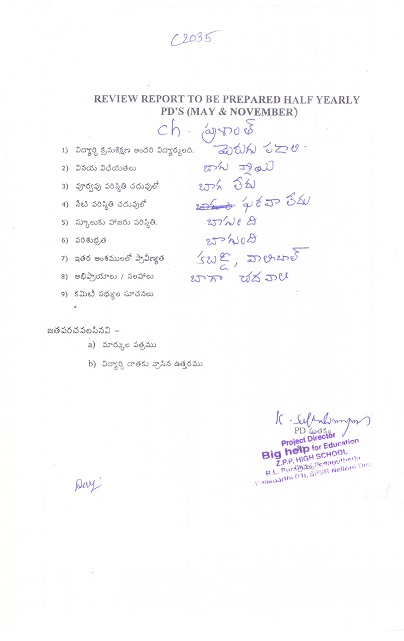 C2035
REVIEW REPORT TO BE PREPARED HALF YEARLY
PD'S (MAY & NOVEMBER)
Ch. ప్రశాంత్
1) విద్యార్థి క్రమశిక్షణ అందరి విద్యార్థులది. మెరుగు పడాలి.
2) వినయ విధేయతలు
3) పూర్వపు పరిస్థితి చదువులో బాగ లేదు
4) నేటి పరిస్థితి చదువులో ఫరవా లేదు
5) స్కూలుకు హాజరు పరిస్థితి. బాగుంది
6) పరిశుభ్రత బాగుంది
7) ఇతర అంశములలో ప్రావీణ్యత కబడ్డి, వాలీబాల్
8) అభిప్రాయాలు / సలహాలు బాగా చదవాలి
9) కమిటీ సభ్యుల సూచనలు
జతపరచవలసినవి –
a) మార్కుల పత్రము
b) విద్యార్థి దాతకు వ్రాసిన ఉత్తరము
PD సంతకం
Project Director
Big help for Education
Z.P.P. HIGH SCHOOL